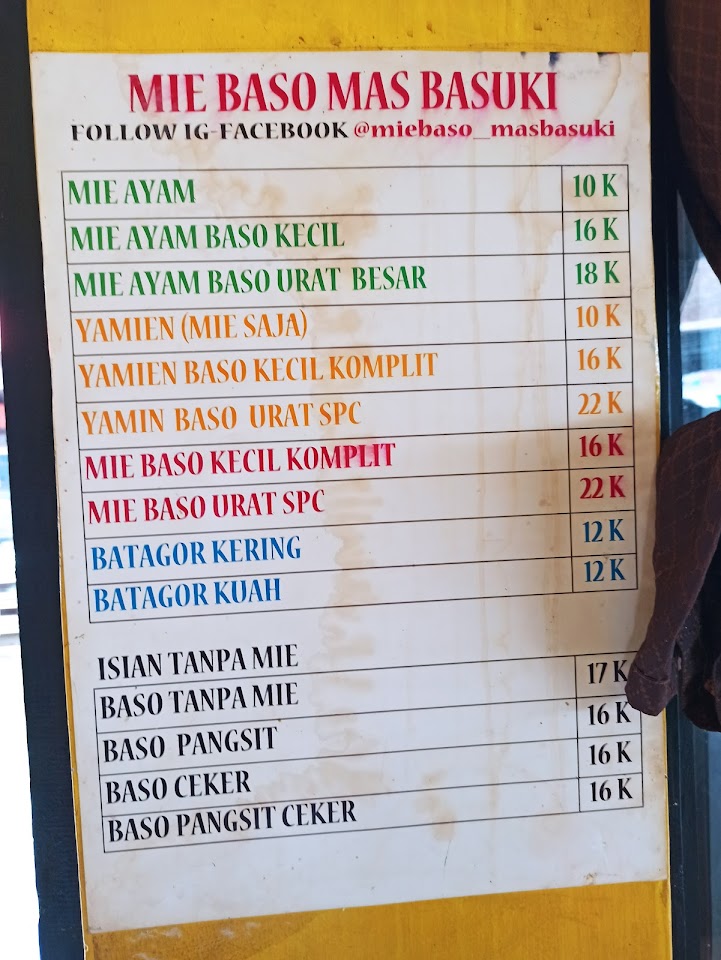 MIE BASO MAS BASUKI
FOLLOW IG-FACEBOOK @miebaso_masbasuki
MIE AYAM 10 K
MIE AYAM BASO KECIL 16 K
MIE AYAM BASO URAT BESAR 18 K
YAMIEN (MIE SAJA) 10 K
YAMIEN BASO KECIL KOMPLIT 16 K
YAMIN BASO URAT SPC 22 K
MIE BASO KECIL KOMPLIT 16 K
MIE BASO URAT SPC 22 K
BATAGOR KERING 12 K
BATAGOR KUAH 12 K
ISIAN TANPA MIE
BASO TANPA MIE 17 K
BASO PANGSIT 16 K
BASO CEKER 16 K
BASO PANGSIT CEKER 16 K